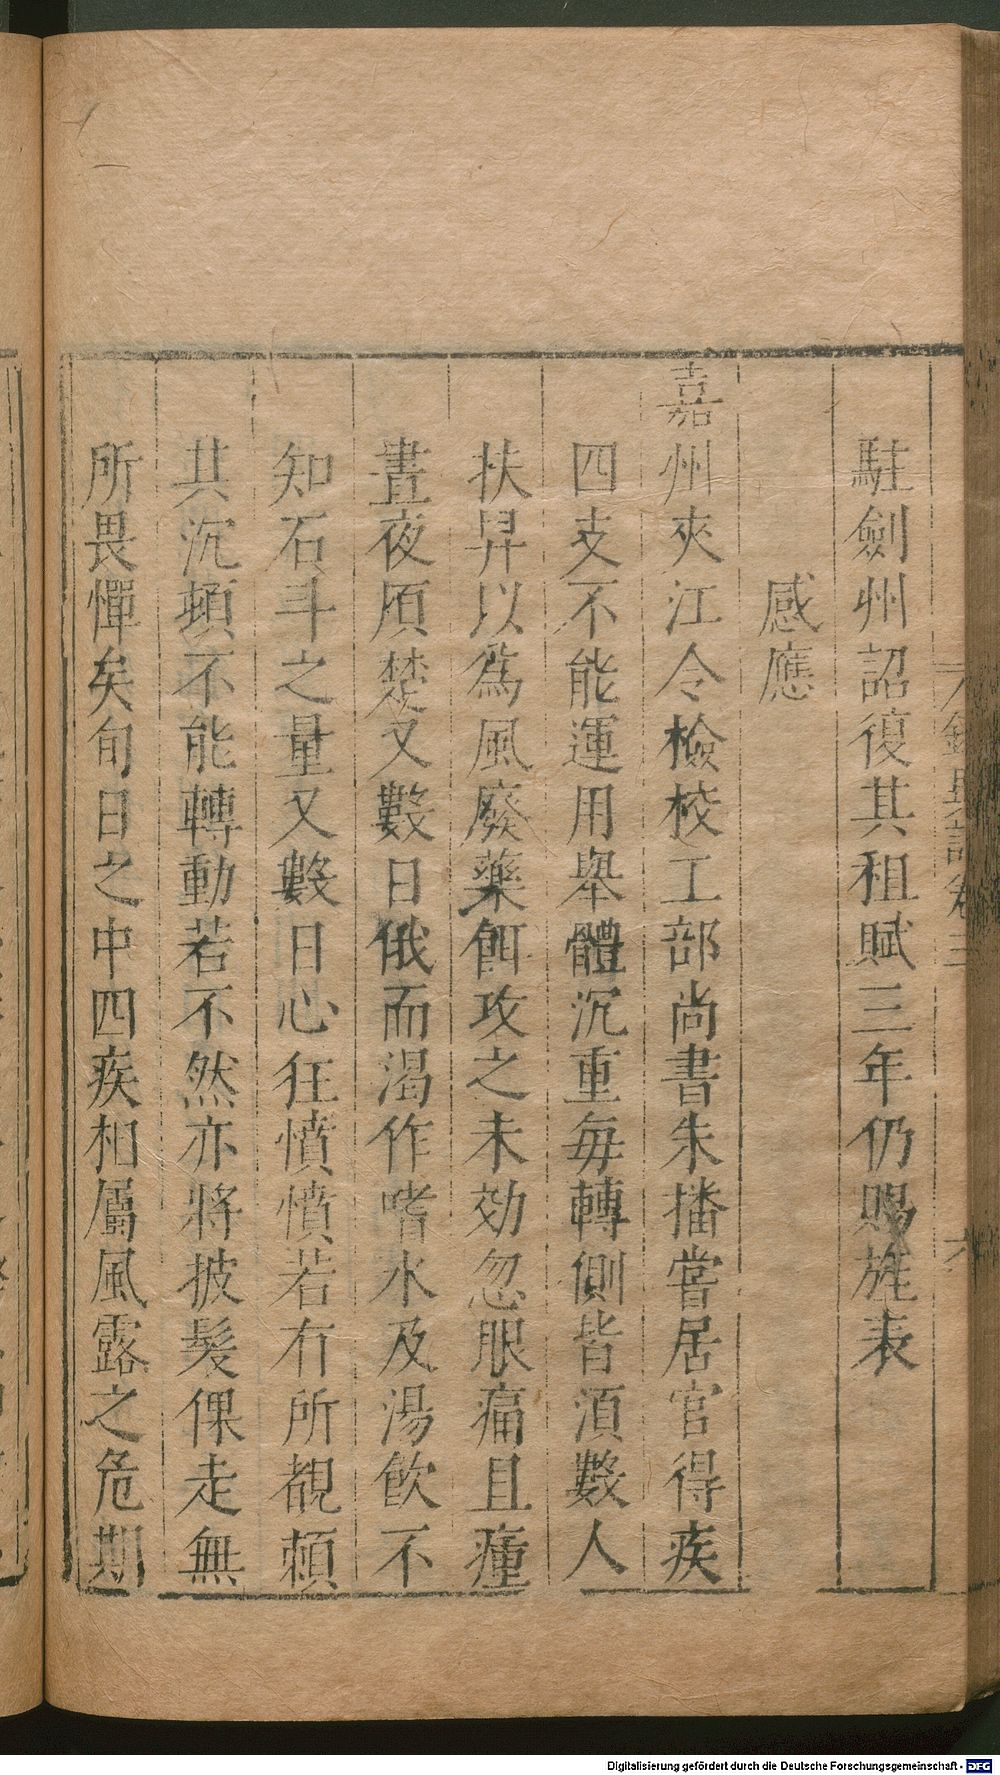 駐劍州詔復其租賦三年仍賜旌表
感應
嘉州夾江令檢校工部尚書朱播嘗居官得疾
四支不能運用舉體沉重每轉側皆須數人
扶舁以為風廢藥餌攻之未効忽眼痛且瘇
晝夜頎楚又數日俄而渴作嗜水及湯飲不
知石斗之量又數日心狂憤憤若有所覩頼
其沉頓不能轉動若不然亦將披髮倮走無
所畏憚矣旬日之中四疾相屬風露之危期
Digitalisierung gefördert durch die Deutsche Forschungsgemeinschaft - DFG